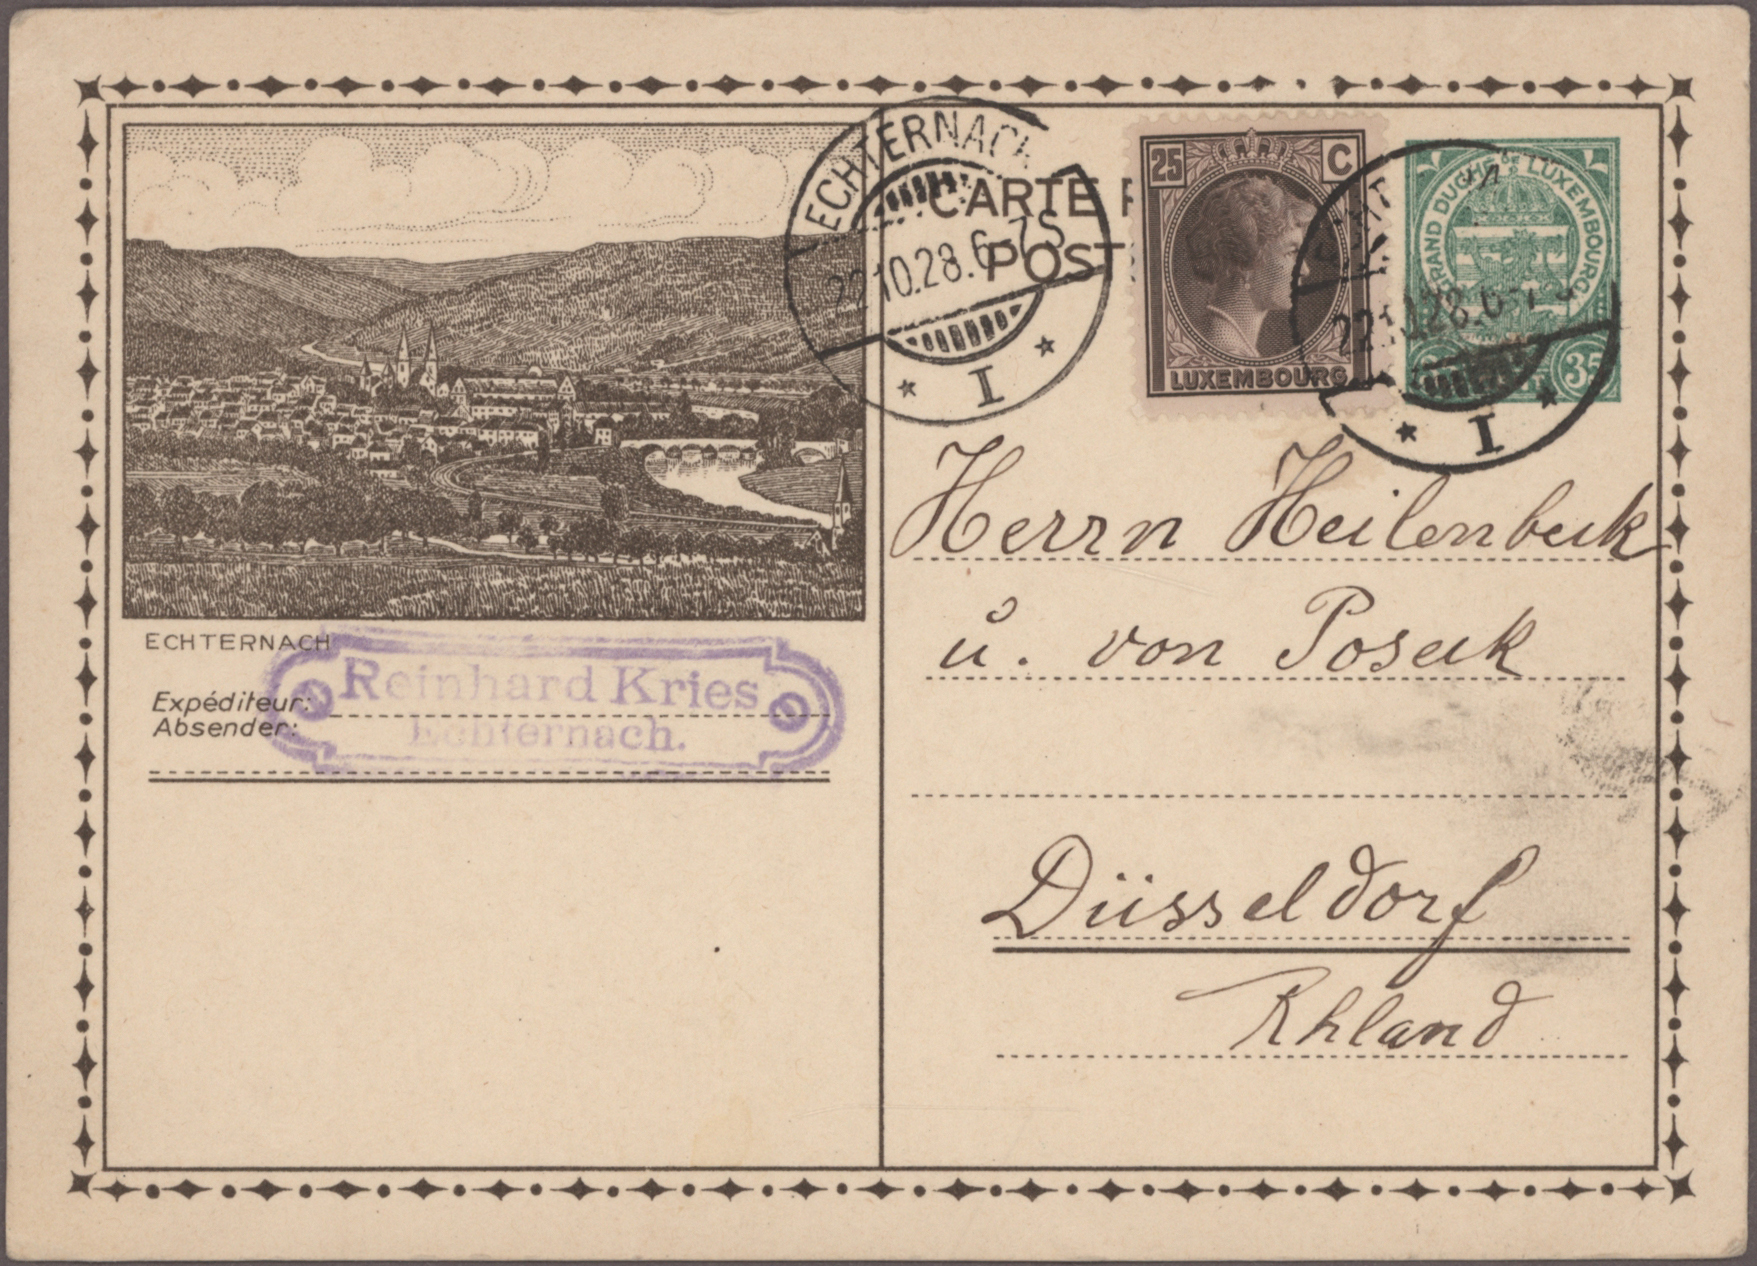 ECHTERNACH
22.10.28.6-7S
I
CARTE P
POST
25 C
LUXEMBOURG
GRAND DUCHÉ DE LUXEMBOURG
35
I
Herrn Heilenbeck
u. von Poseck
Düsseldorf
Rhland
ECHTERNACH
Expéditeur:
Absender:
Reinhard Kries
Echternach.